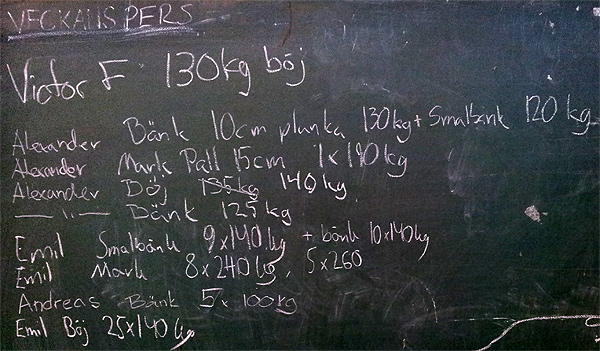 VECKANS PERS
Victor F 130kg böj
Alexander Bänk 10cm planka 130kg + Smalbänk 120 kg
Alexander Mark Pall 15cm 1x190kg
Alexander Böj 135kg 140kg
—— 11 —— Bänk 125 kg
Emil Smalbänk 9x140 kg + bänk 10x140kg
Emil Mark 8x240 kg, 5x260
Andreas Bänk 5x100kg
Emil Böj 25x140 kg